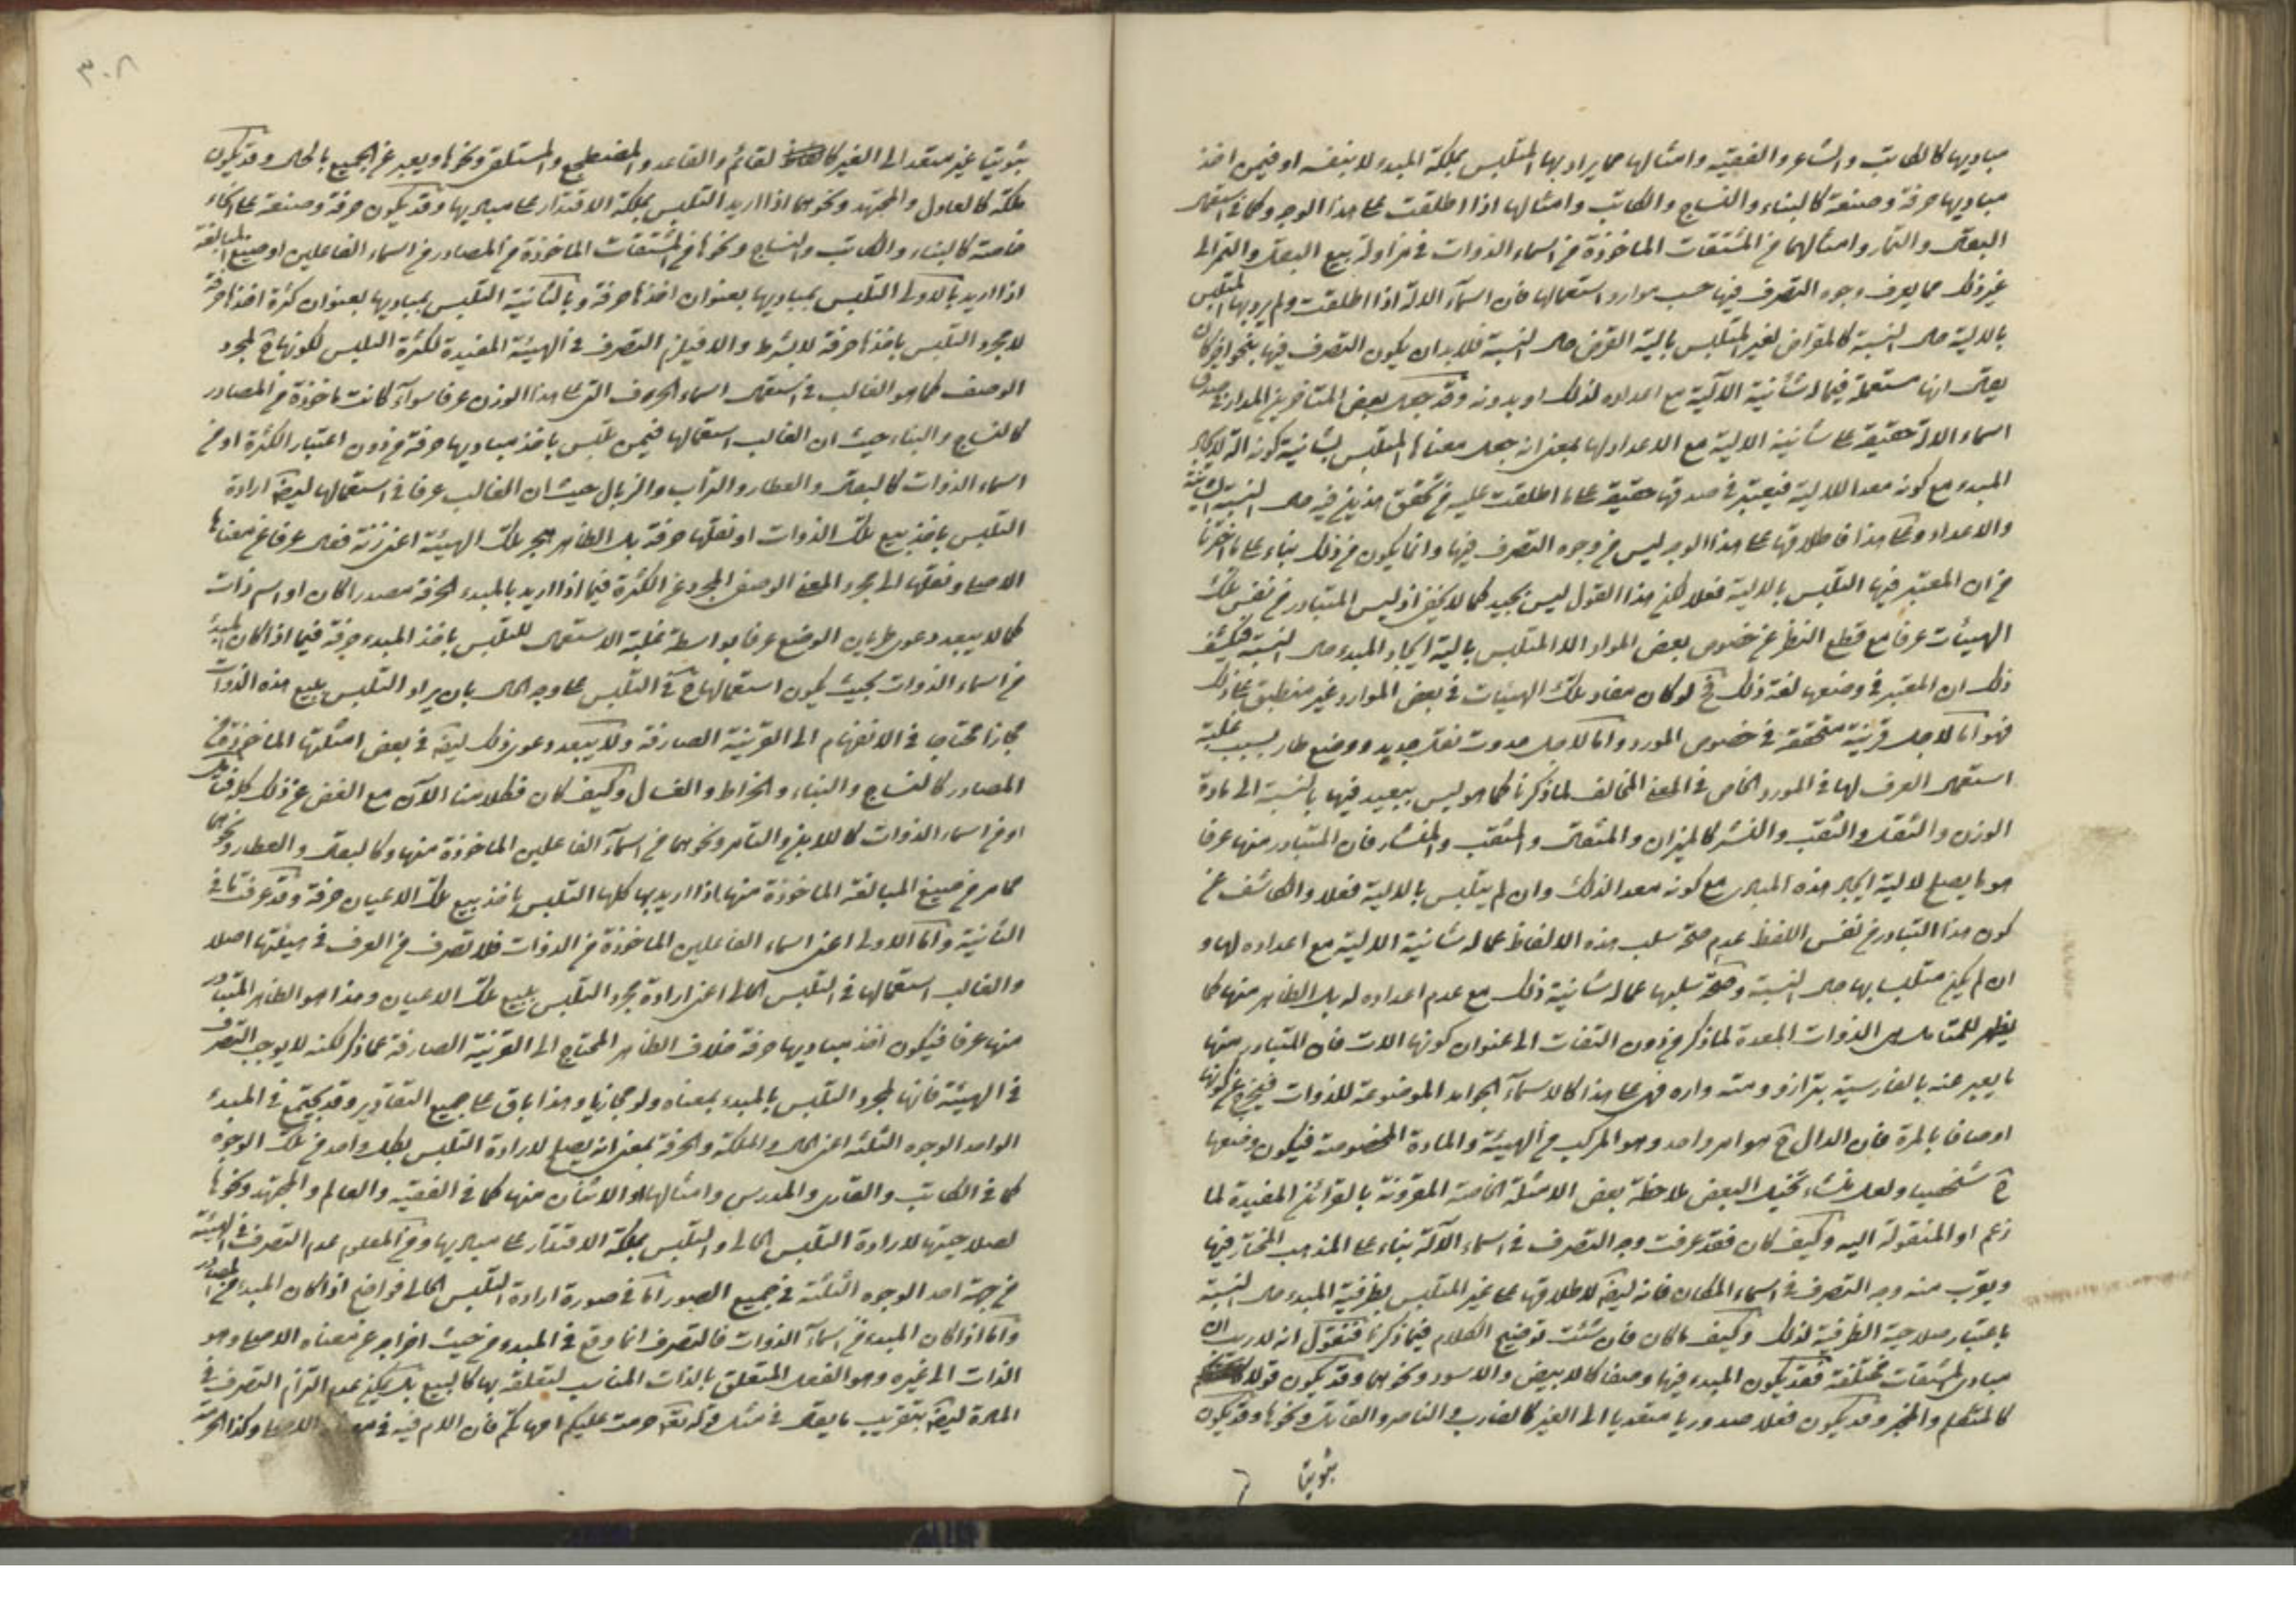 مباديها كالكاتب والشاعر والفقيه وامثالها مما يراد بها المتلبس بملكة المبدء لا بنفسه او فيمن اخذ
مباديها حرفة وصنعة كالبناء والنساج والكاتب وامثالها اذا اطلقت على هذا الوجه وكما في استعمال
البقال والتمار وامثالهما من المشتقات الماخوذة من اسماء الذوات في مزاولة بيع البقل والتمر الى
غير ذلك مما يعرف وجوه التصرف فيها حسب موارد استعمالها فان اسماء الآلة اذا اطلقت ولم يرد بها المتلبس
بالالية حال النسبة كالمقراض لغير المتلبس بالية القرض حال النسبة فلا بد ان يكون التصرف فيها بنحو اخر كان
يقال انها مستعملة فيما له شأنية الآلية مع اعداده لذلك او بدونه وقد جعل بعض المتاخرين المدار في صدق
اسماء الالة حقيقة على شأنية الالية مع الاعداد لها بمعنى انه جعل معناها المتلبس بشأنية كونه الة لايجاد
المبدء مع كونه معدا للالية فيعتبر في صدقها حقيقة على ما اطلقت عليه من تحقق هذين فيه حال النسبة الشأنية
والاعداد وعلى هذا فاطلاقها على هذا الوجه ليس من وجوه التصرف فيها وانما يكون من ذلك بناء على ما اخترنا
من ان المعتبر فيها التلبس بالالية فعلا لكن هذا القول ليس بجيد كما لا يخفى اذ ليس المتبادر من نفس تلك
الهيئات عرفا مع قطع النظر عن خصوص بعض المواد الا المتلبس بالية ايجاد المبدء حال النسبة فيكشف
ذلك ان المعتبر في وضعها لغة ذلك ح لو كان مفاد تلك الهيئات في بعض الموارد غير منطبق على ذلك
فهو اما لاجل قرينة متحققة في خصوص المورد واما لاجل حدوث نقل جديد ووضع طار بسبب غلبة
استعمال العرف لها في المورد الخاص في المعنى المخالف لما ذكرنا كما هو ليس ببعيد فيها بالنسبة الى مادة
الوزن والثقل والثقب والنشر كالميزان والمثقال والمثقب والمنشار فان المتبادر منها عرفا
هو ما يصلح لالية ايجاد هذه المبادي مع كونه معدا لذلك وان لم يتلبس بالالية فعلا والكاشف عن
كون هذا التبادر من نفس اللفظ عدم صحة سلب هذه الالفاظ عما له شأنية الالية مع اعداده لها و
ان لم يكن متلبسا بها حال النسبة وصحة سلبها عما له شأنية ذلك مع عدم اعداده له بل الظاهر منها كما
يظهر للمتامل الذوات المعدة لما ذكر من دون التفات الى عنوان كونها الات فان المتبادر منها
ما يعبر عنه بالفارسية بترازو ومته واره فهي على هذا كالاسماء الجوامد الموضوعة للذوات فيخرج عن كونها
اوصافا بالمرة فان الدال ح هو امر واحد وهو المركب من الهيئة والمادة المخصوصة فيكون وضعها
ح شخصيا ولعل منشاء تخيل البعض ملاحظة بعض الامثلة الخاصة المقرونة بالقرائن المفيدة لما
زعم او المنقولة اليه وكيف كان فقد عرفت وجه التصرف في اسماء الآلة بناء على المذهب المختار فيها
ويقرب منه وجه التصرف في اسماء المكان فانه ايضا لاطلاقها على غير المتلبس بظرفية المبدء حال النسبة
باعتبار صلاحية الظرفية لذلك وكيف ما كان فان شئت توضيح الكلام فيما ذكرنا فنقول انه لا ريب ان
مبادي المشتقات مختلفة فقد يكون المبدء فيها وصفا كالابيض والاسود ونحوهما وقد يكون قولا
كالمتكلم والمخبر وقد يكون فعلا صدوريا متعديا الى الغير كالضارب والناصر والقاتل ونحوها وقد يكون
ثبوتيا
٣٠٨
ثبوتيا غير متعد الى الغير كالقائم والقاعد والمضطجع والمستلقي ونحوها ويعبر عن الجميع بالحال وقد يكون
ملكة كالعادل والمجتهد ونحوهما اذا اريد التلبس بملكة الاقتدار على مباديها وقد يكون حرفة وصنعة على انحاء
خاصة كالبناء والكاتب والنساج ونحوها من المشتقات الماخوذة من المصادر من اسماء الفاعلين او صيغ المبالغة
اذا اريد بالاولى التلبس بمباديها بعنوان اخذها حرفة وبالثانية التلبس بمباديها بعنوان كثرة اخذها حرفة
لا مجرد التلبس باخذها حرفة لا بشرط والا فيلزم التصرف في الهيئة المفيدة لكثرة التلبس لكونها ح لمجرد
الوصف كما هو الغالب في استعمال اسماء الحروف التي على هذا الوزن عرفا سواء كانت ماخوذة من المصادر
كالنساج والبناء حيث ان الغالب استعمالها فيمن تلبس باخذ مباديها حرفة من دون اعتبار الكثرة او من
اسماء الذوات كالبقال والعطار والتراب والزبال حيث ان الغالب عرفا في استعمالها ايضا ارادة
التلبس باخذ بيع تلك الذوات او نقلها حرفة بل الظاهر هجر تلك الهيئة اعني زنة فعال عرفا عن معناها
الاصلي ونقلها الى مجرد المعنى الوصفي المجرد عن الكثرة فيما اذا اريد بالمبدء الحرفة مصدرا كان او اسم ذات
كما لا يبعد دعوى طريان الوضع عرفا بواسطة غلبة الاستعمال للتلبس باخذ المبدء حرفة فيما اذا كان المبدء
من اسماء الذوات بحيث يكون استعمالها ح في التلبس على وجه الحال بان يراد التلبس ببيع هذه الذوات
مجازا محتاجا في الانفهام الى القرينة الصارفة ولا يبعد دعوى ذلك ايضا في بعض امثلتها الماخوذة من
المصادر كالنساج والبناء والخراط والغسال وكيف كان فكلامنا الآن مع الغض عن ذلك كله
او من اسماء الذوات كاللابن والتامر ونحوهما من اسماء الفاعلين الماخوذة منها وكالبقال والعطار ونحوهما
مما مر من صيغ المبالغة الماخوذة منها اذا اريد بها كلها التلبس باخذ بيع تلك الاعيان حرفة وقد عرفت ما في
الثانية واما الاولى اعني اسماء الفاعلين الماخوذة من الذوات فلا تصرف من العرف في هيئتها اصلا
والغالب استعمالها في التلبس الحالي اعني ارادة مجرد التلبس ببيع تلك الاعيان وهذا هو الظاهر المتبادر
منها عرفا فيكون اخذ مباديها حرفة خلاف الظاهر المحتاج الى القرينة الصارفة عما ذكر لكنه لا يوجب التصرف
في الهيئة فانها لمجرد التلبس بالمبدء بمعناه ولو مجازيا وهذا باق على جميع التقادير وقد يجتمع في المبدء
الواحد الوجوه الثلثة اعني الحال والملكة والحرفة بمعنى انه يصلح لارادة التلبس بكل واحد من تلك الوجوه
كما في الكاتب والقاري والمدرس وامثالها او الاثنان منها كما في الفقيه والعالم والمجتهد ونحوها
لصلاحيتها لارادة التلبس الحالي والتلبس بملكة الاقتدار على مباديها ومن المعلوم عدم التصرف في الهيئة
من جهة احد الوجوه الثلثة في جميع الصور اما في صورة ارادة التلبس الحالي فواضح اذا كان المبدء من المصادر
واما اذا كان المبدء من اسماء الذوات فالتصرف انما وقع في المبدء من حيث اخراجه عن معناه الاصلي وهو
الذات الى غيره وهو الفعل المتعلق بالذات المناسب لتعلقه بها كالبيع بل يمكن عدم التزام التصرف في
المادة ايضا بتقريب ما يقال في مثل قوله تعالى حرمت عليكم امهاتكم فان الام فيه في الاصلي وكذا الحرمة